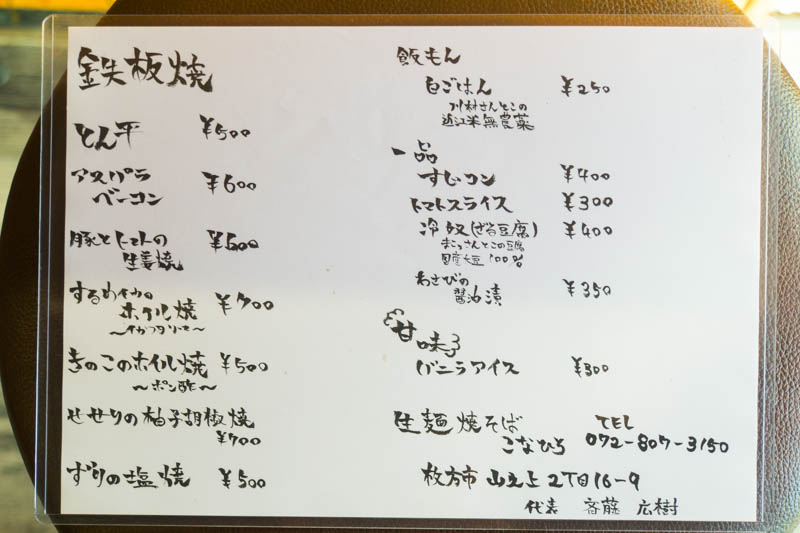 鉄板焼
とん平 ¥500
アスパラ
ベーコン ¥600
豚とトマトの
生姜焼 ¥600
するめイカの
ホイル焼 ¥700
きのこのホイル焼 ¥500
〜ポン酢〜
せせりの柚子胡椒焼
¥700
ずりの塩焼 ¥500
飯もん
白ごはん ¥250
川村さんとこの
近江米無農薬
一品
すじコン ¥400
トマトスライス ¥300
冷奴(ざる豆腐) ¥400
まこっさんとこの豆腐
国産大豆100%
わさびの
醤油漬 ¥350
甘味
バニラアイス ¥300
生麺焼そば
こなひろ
TEL
072-807-3150
枚方市 山之上2丁目16-9
代表 斉藤 広樹